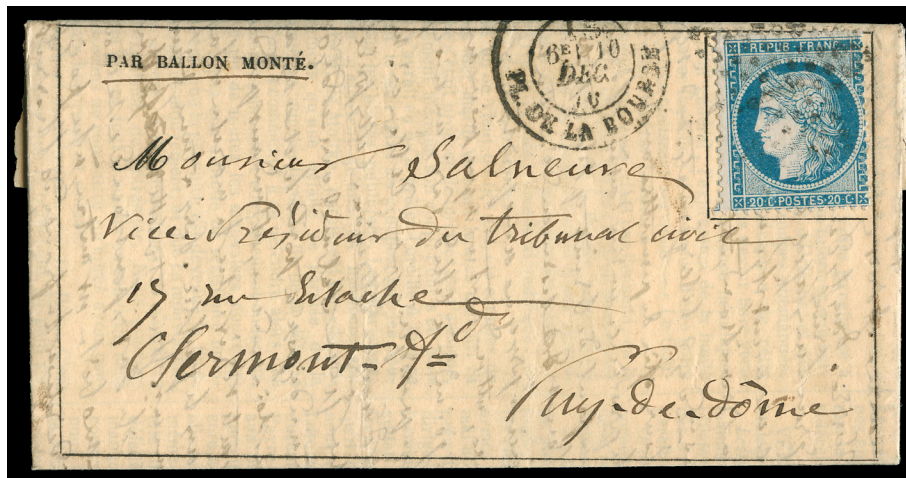 PAR BALLON MONTÉ.
6E 10
DEC.
70
PL. DE LA BOURSE
REPUB. FRANC.
20 C. POSTES 20 C.
Monsieur Salneuve
Vice-Président du tribunal civil
17 rue
Clermont-Fd
Puy-de-dôme